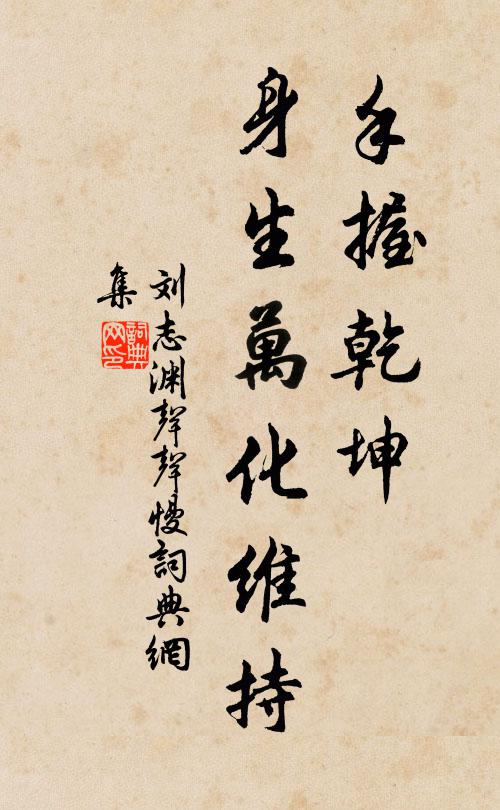 手握乾坤
身生萬化維持
刘志渊聲聲慢詞典網
集
詞典
网印